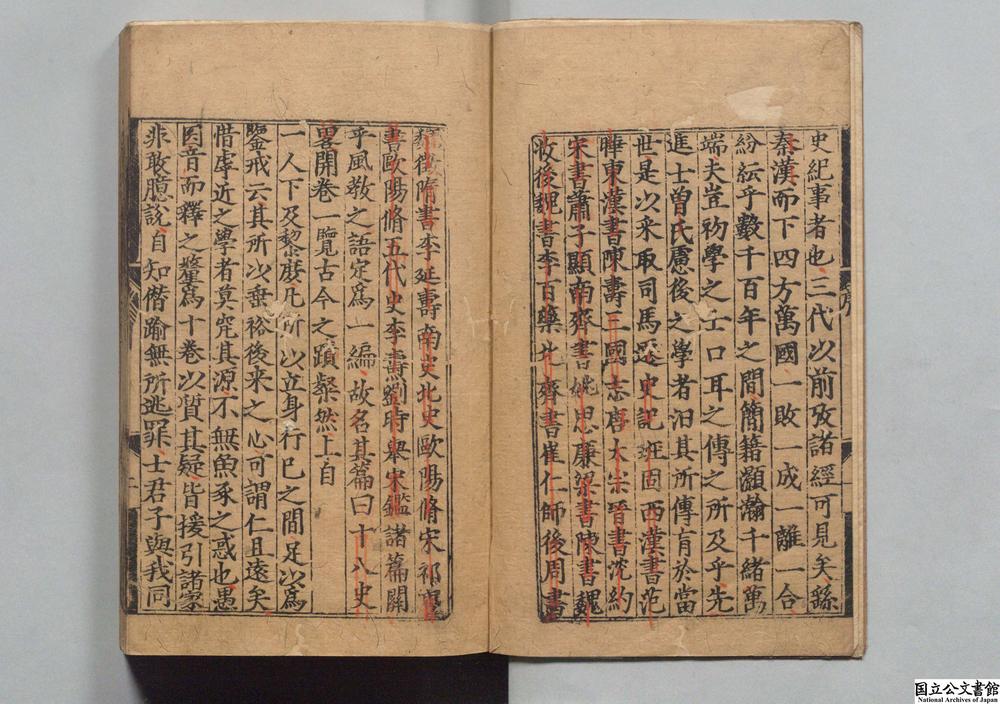 史紀事者也三代以前攷諸經可見矣繇
秦漢而下四方萬國一敗一成一離一合
紛紜乎數千百年之間簡籍灝瀚千緒萬
端夫豈初學之士口耳之傳之所及乎先
進士曽氏慮後之學者汨其所傳肓於當
世是以來取司馬遷史記班固西漢書范
曄東漢書陳壽三國志唐太宗晉書沈約
宋書蕭子顯南齊書姚思廉梁書陳書魏
收後魏書李百藥北齊書崔仁師後周書
魏徴隋書李延壽南史北史歐陽脩宋祁唐
書歐陽脩五代史李燾劉時舉宋鑑諸篇關
乎風敎之語定爲一編故名其篇曰十八史
畧開卷一覽古今之蹟粲然上自
一人下及黎庶凡所以立身行已之間足以爲
鑒戒云其所以垂裕後来之心可謂仁且遠矣
惜虖近之學者莫究其源不無魚豕之惑也愚
因音而釋之釐爲十卷以質其疑皆援引諸家
非敢臆說自知僭踰無所逃罪士君子與我同
国立公文書館
National Archives of Japan